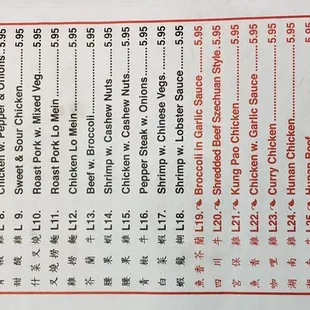 椒 雞 L 8. Chicken w. Pepper & Onions. 5.95
甜 酸 雞 L 9. Sweet & Sour Chicken 5.95
什 菜 叉 燒 L10. Roast Pork w. Mixed Veg. 5.95
叉 燒 撈 麵 L11. Roast Pork Lo Mein 5.95
雞 撈 麵 L12. Chicken Lo Mein 5.95
芥 蘭 牛 L13. Beef w. Broccoli 5.95
腰 果 蝦 L14. Shrimp w. Cashew Nuts 5.95
腰 果 雞 L15. Chicken w. Cashew Nuts 5.95
青 椒 牛 L16. Pepper Steak w. Onions 5.95
白 菜 蝦 L17. Shrimp w. Chinese Vegs. 5.95
龍 糊 L18. Shrimp w. Lobster Sauce 5.95
魚 香 芥 蘭 L19. Broccoli in Garlic Sauce 5.95
四 川 牛 L20. Shredded Beef Szechuan Style. 5.95
宮 保 雞 L21. Kung Pao Chicken 5.95
魚 香 雞 L22. Chicken w. Garlic Sauce 5.95
咖 哩 雞 L23. Curry Chicken 5.95
湖 南 雞 L24. Hunan Chicken 5.95
湖 南 牛 L25. Hunan Beef